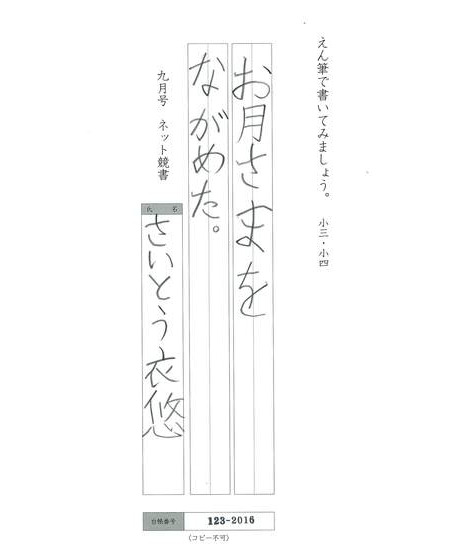 えん筆で書いてみましょう。 小三・小四
お月さまを
ながめた。
九月号 ネット競書
氏名
さいとう衣悠
台帳番号 123-2016
(コピー不可)